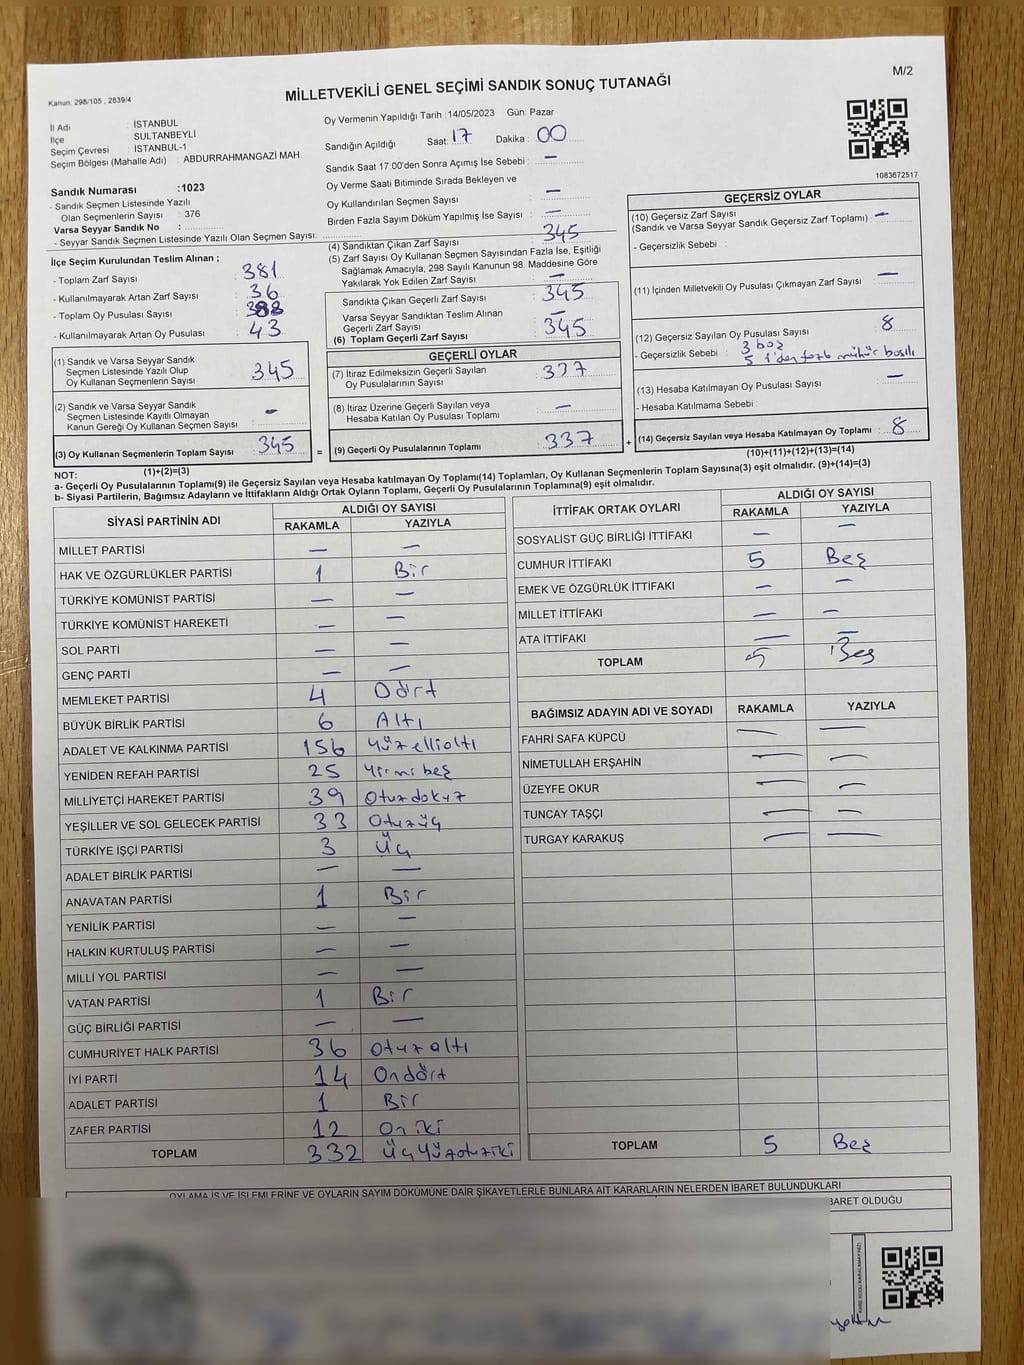 M/2
Kanun: 298/105 , 2839/4
MİLLETVEKİLİ GENEL SEÇİMİ SANDIK SONUÇ TUTANAĞI
İl Adı : İSTANBUL
İlçe : SULTANBEYLİ
Seçim Çevresi : İSTANBUL-1
Seçim Bölgesi (Mahalle Adı) : ABDURRAHMANGAZİ MAH.
Sandık Numarası :1023
- Sandık Seçmen Listesinde Yazılı
Olan Seçmenlerin Sayısı : 376
Varsa Seyyar Sandık No :
- Seyyar Sandık Seçmen Listesinde Yazılı Olan Seçmen Sayısı:
Oy Vermenin Yapıldığı Tarih : 14/05/2023 Gün: Pazar
Sandığın Açıldığı Saat: 17 Dakika : 00
Sandık Saat 17:00'den Sonra Açımış İse Sebebi : —
Oy Verme Saati Bitiminde Sırada Bekleyen ve
Oy Kullandırılan Seçmen Sayısı : —
Birden Fazla Sayım Döküm Yapılmış İse Sayısı : —
1083672517
İlçe Seçim Kurulundan Teslim Alınan ;
- Toplam Zarf Sayısı : 381
- Kullanılmayarak Artan Zarf Sayısı : 36
- Toplam Oy Pusulası Sayısı :
- Kullanılmayarak Artan Oy Pusulası : 43
(1) Sandık ve Varsa Seyyar Sandık
Seçmen Listesinde Yazılı Olup
Oy Kullanan Seçmenlerin Sayısı : 345
(2) Sandık ve Varsa Seyyar Sandık
Seçmen Listesinde Kayıtlı Olmayan
Kanun Gereği Oy Kullanan Seçmen Sayısı : —
(3) Oy Kullanan Seçmenlerin Toplam Sayısı : 345
(1)+(2)=(3)
(4) Sandıktan Çıkan Zarf Sayısı : 345
(5) Zarf Sayısı Oy Kullanan Seçmen Sayısından Fazla İse, Eşitliği
Sağlamak Amacıyla, 298 Sayılı Kanunun 98. Maddesine Göre
Yakılarak Yok Edilen Zarf Sayısı : —
Sandıkta Çıkan Geçerli Zarf Sayısı : 345
Varsa Seyyar Sandıktan Teslim Alınan
Geçerli Zarf Sayısı : —
(6) Toplam Geçerli Zarf Sayısı : 345
GEÇERLİ OYLAR
(7) İtiraz Edilmeksizin Geçerli Sayılan
Oy Pusulalarının Sayısı : 337
(8) İtiraz Üzerine Geçerli Sayılan veya
Hesaba Katılan Oy Pusulası Toplamı : —
= (9) Geçerli Oy Pusulalarının Toplamı : 337 +
GEÇERSİZ OYLAR
(10) Geçersiz Zarf Sayısı : —
(Sandık ve Varsa Seyyar Sandık Geçersiz Zarf Toplamı)
- Geçersizlik Sebebi :
(11) İçinden Milletvekili Oy Pusulası Çıkmayan Zarf Sayısı : —
(12) Geçersiz Sayılan Oy Pusulası Sayısı : 8
- Geçersizlik Sebebi : 3 boş
5 1'den fazla mühür basılı
(13) Hesaba Katılmayan Oy Pusulası Sayısı : —
- Hesaba Katılmama Sebebi :
(14) Geçersiz Sayılan veya Hesaba Katılmayan Oy Toplamı : 8
(10)+(11)+(12)+(13)=(14)
NOT:
a- Geçerli Oy Pusulalarının Toplamı(9) ile Geçersiz Sayılan veya Hesaba katılmayan Oy Toplamı(14) Toplamları, Oy Kullanan Seçmenlerin Toplam Sayısına(3) eşit olmalıdır. (9)+(14)=(3)
b- Siyasi Partilerin, Bağımsız Adayların ve İttifakların Aldığı Ortak Oyların Toplamı, Geçerli Oy Pusulalarının Toplamına(9) eşit olmalıdır.
SİYASİ PARTİNİN ADI ALDIĞI OY SAYISI
RAKAMLA YAZIYLA
MİLLET PARTİSİ — —
HAK VE ÖZGÜRLÜKLER PARTİSİ 1 Bir
TÜRKİYE KOMÜNİST PARTİSİ — —
TÜRKİYE KOMÜNİST HAREKETİ — —
SOL PARTİ — —
GENÇ PARTİ — —
MEMLEKET PARTİSİ 4 Dört
BÜYÜK BİRLİK PARTİSİ 6 Altı
ADALET VE KALKINMA PARTİSİ 156 Yüzellialtı
YENİDEN REFAH PARTİSİ 25 Yirmibeş
MİLLİYETÇİ HAREKET PARTİSİ 39 Otuzdokuz
YEŞİLLER VE SOL GELECEK PARTİSİ 33 Otuzüç
TÜRKİYE İŞÇİ PARTİSİ 3 Üç
ADALET BİRLİK PARTİSİ — —
ANAVATAN PARTİSİ 1 Bir
YENİLİK PARTİSİ — —
HALKIN KURTULUŞ PARTİSİ — —
MİLLİ YOL PARTİSİ — —
VATAN PARTİSİ 1 Bir
GÜÇ BİRLİĞİ PARTİSİ — —
CUMHURİYET HALK PARTİSİ 36 Otuzaltı
İYİ PARTİ 14 Ondört
ADALET PARTİSİ 1 Bir
ZAFER PARTİSİ 12 Oniki
TOPLAM 332 Üçyüzotuziki
İTTİFAK ORTAK OYLARI ALDIĞI OY SAYISI
RAKAMLA YAZIYLA
SOSYALİST GÜÇ BİRLİĞİ İTTİFAKI — —
CUMHUR İTTİFAKI 5 Beş
EMEK VE ÖZGÜRLÜK İTTİFAKI — —
MİLLET İTTİFAKI — —
ATA İTTİFAKI — —
TOPLAM 5 Beş
BAĞIMSIZ ADAYIN ADI VE SOYADI RAKAMLA YAZIYLA
FAHRİ SAFA KÜPCÜ — —
NİMETULLAH ERŞAHİN — —
ÜZEYFE OKUR — —
TUNCAY TAŞÇI — —
TURGAY KARAKUŞ — —
TOPLAM 5 Beş
OYLAMA İŞ VE İŞLEMLERİNE VE OYLARIN SAYIM DÖKÜMÜNE DAİR ŞİKAYETLERLE BUNLARA AİT KARARLARIN NELERDEN İBARET BULUNDUKLARI
BARET OLDUĞU